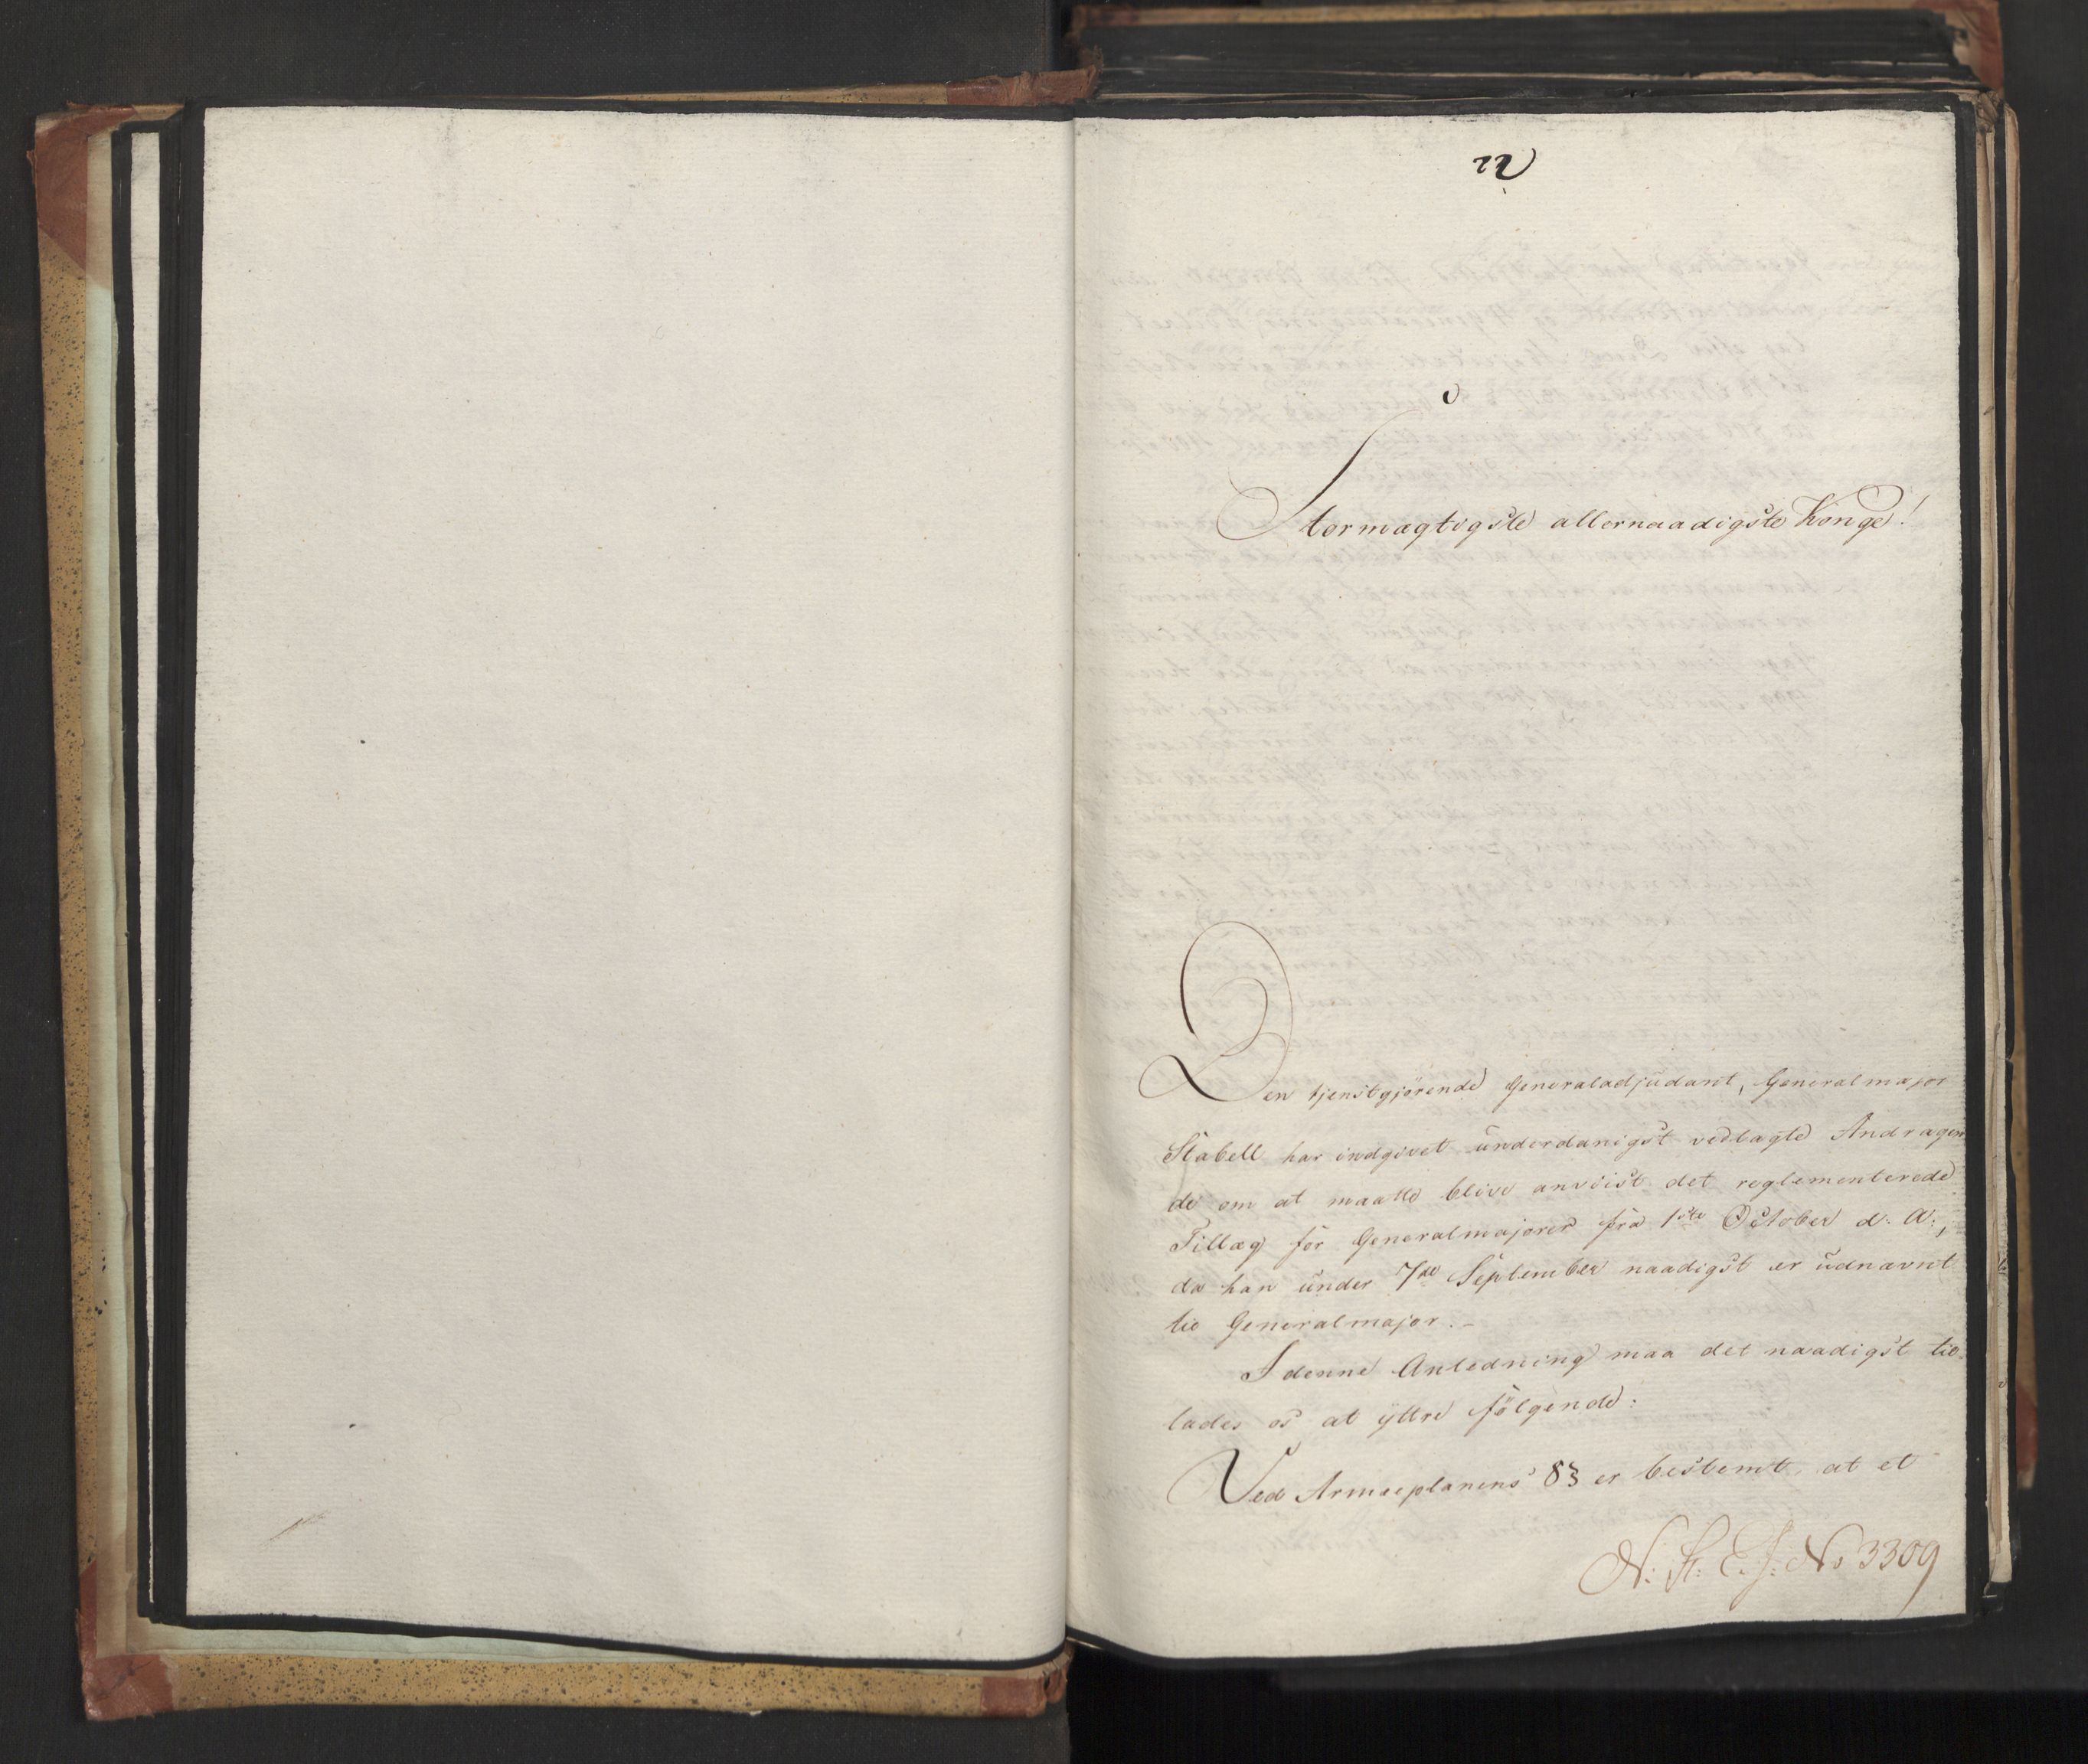 22
Stormægtigste allernaadigste Konge!
Den tjenstgjörende Generaladjudant, Generalmajor
Stabell har indgivet underdanigst vedlagte Andragen
de om at maatte blive anviist det reglementerede
Tillæg for Generalmajorer fra 1ste October d. A:,
da han under 7de September naadigst er udnævnt
til Generalmajor.-
I denne Anledning maa det naadigst til
lades os at yttre følgende:
Ved Armeeplanens 8§ er bestemt, at et
N: St: E. J: No 3309